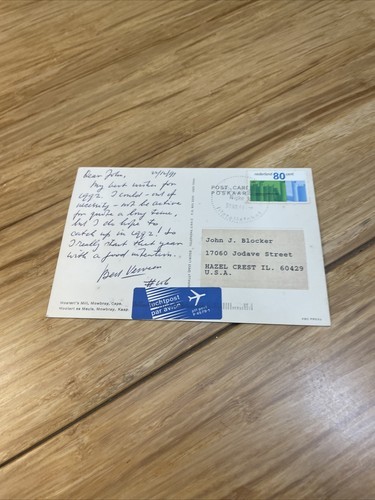 Dear John,
My best wishes for
1992! I could - out of
necessity - not be active
for quite a long time,
but I do hope to
catch up in 1992! So
I really start this year
with a good intention...
#46
Mostert's Mill, Mowbray, Cape.
Mostert se Meule, Mowbray, Kaap.
POST CARD
POSKAART
nederland 80 cent
John J. Blocker
17060 Jodave Street
HAZEL CREST IL. 60429
U.S.A.
luchtpost
par avion